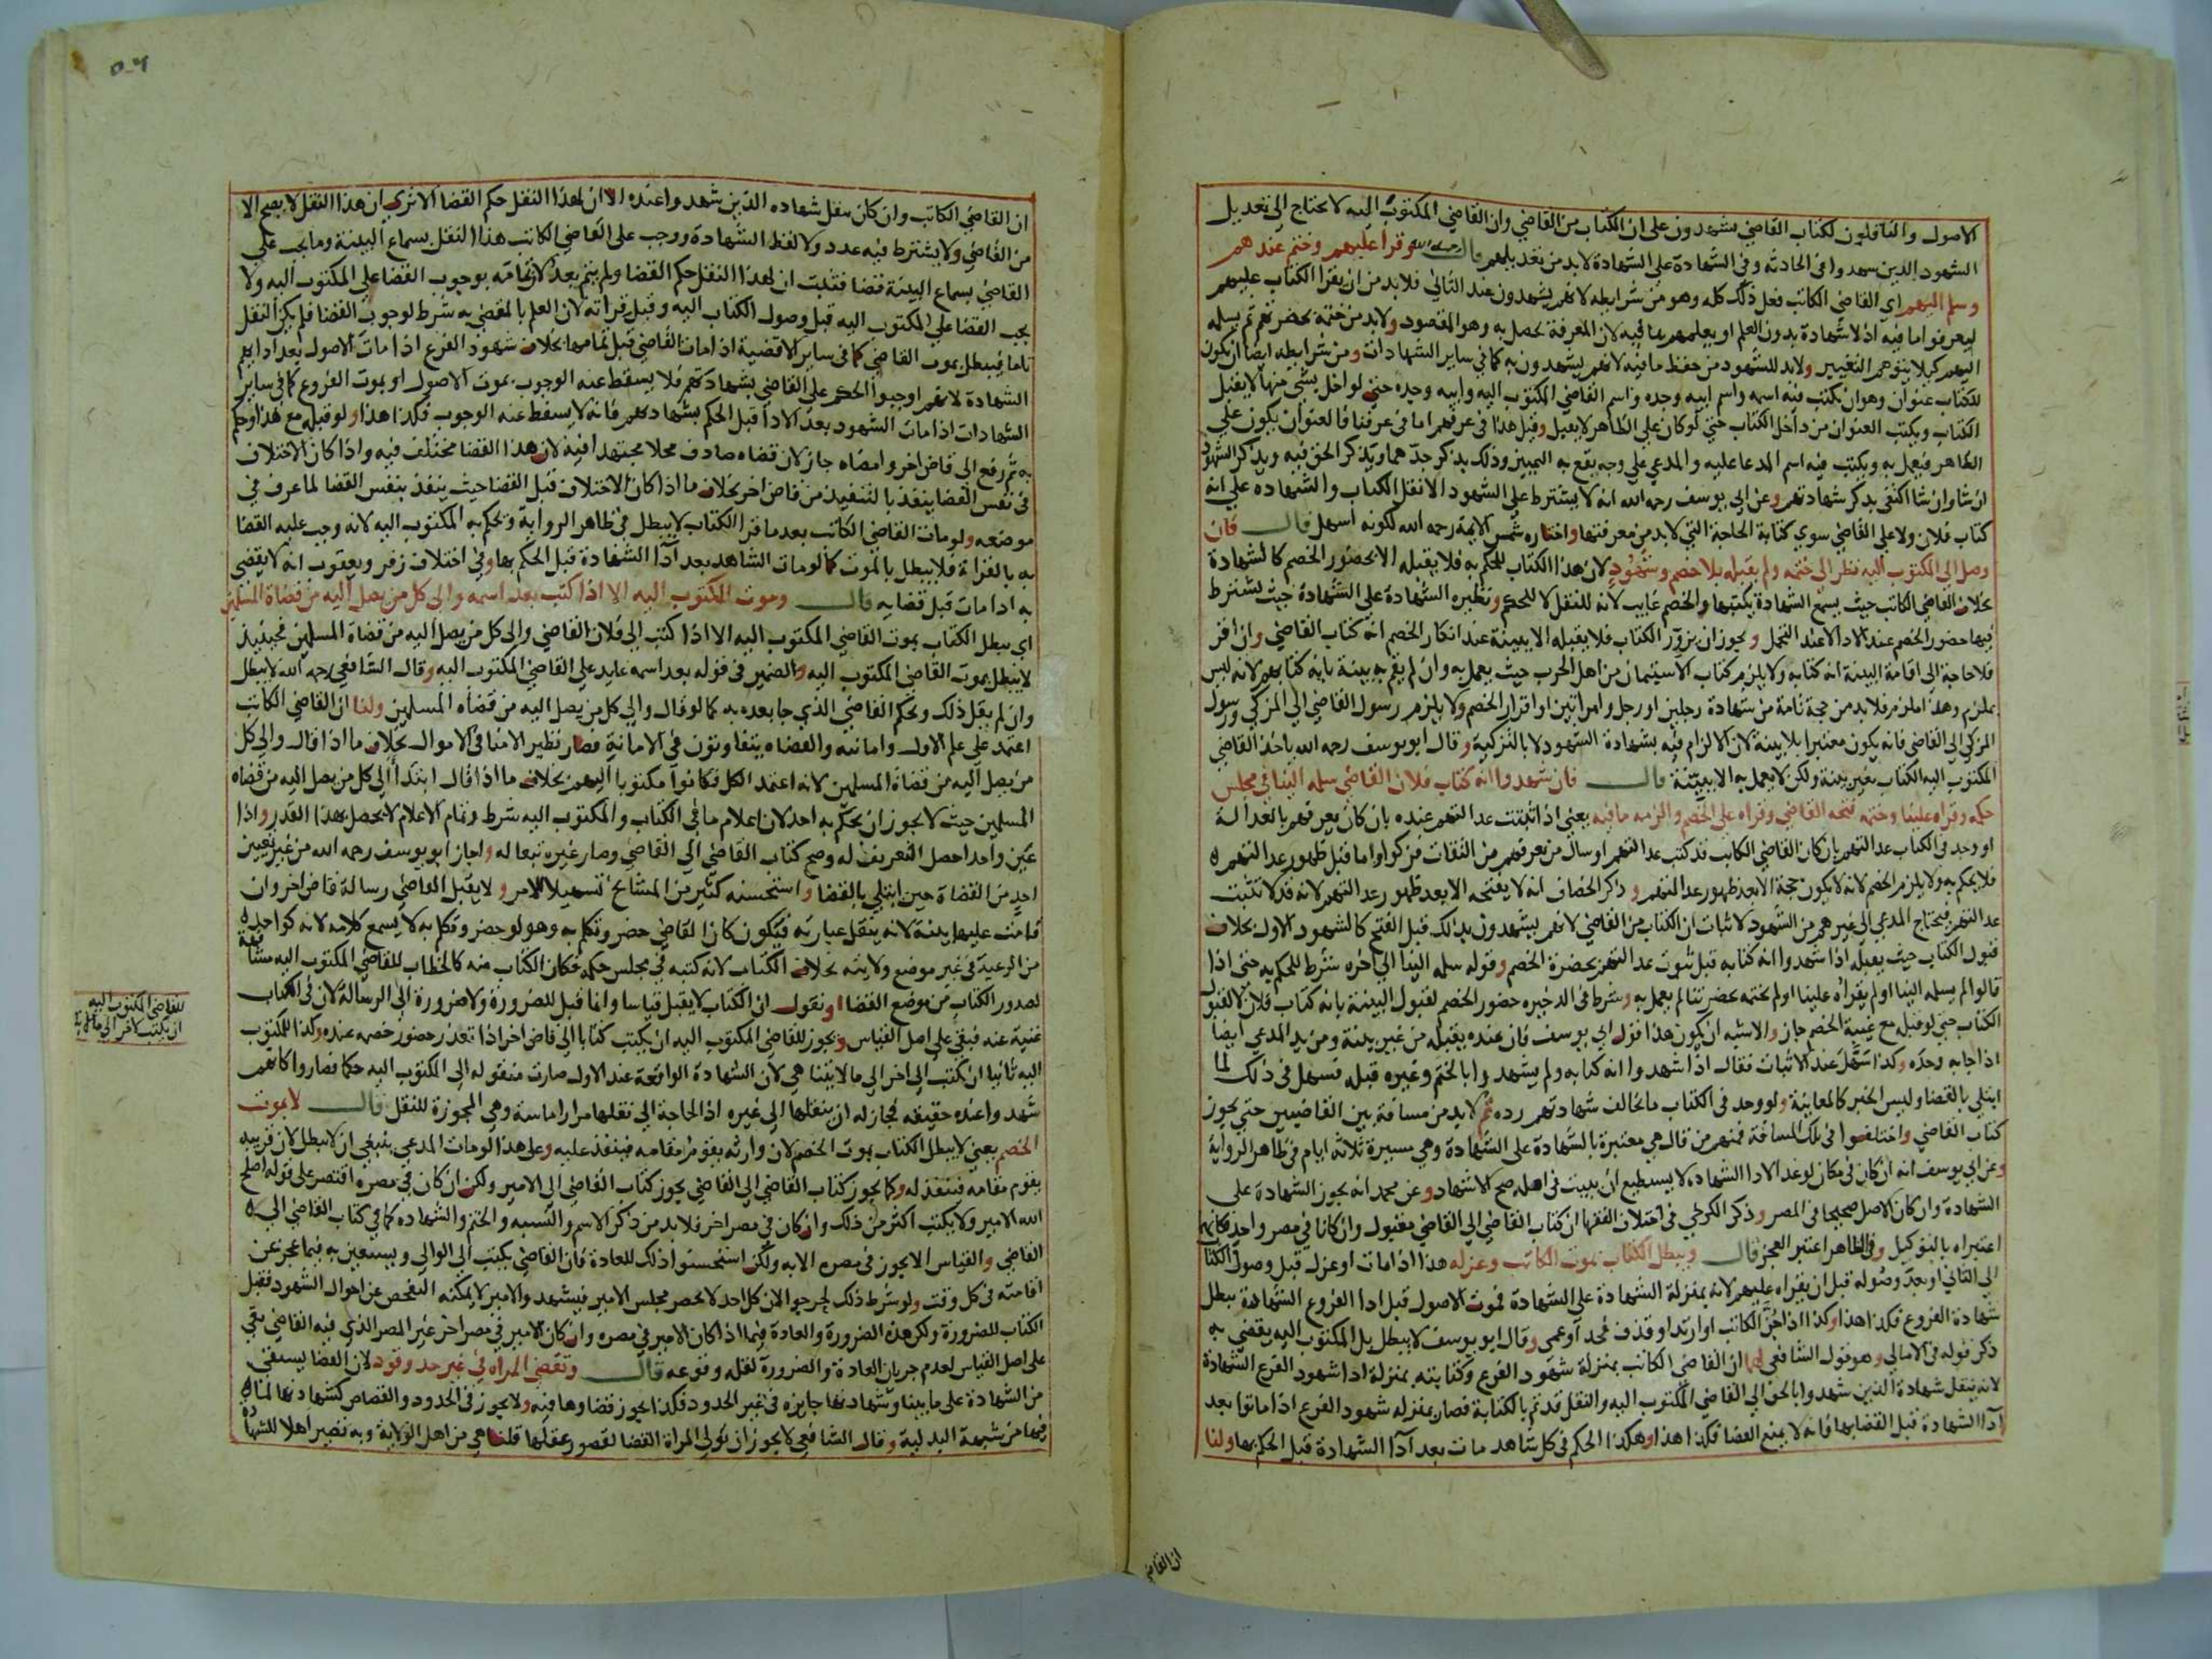 الاصول والناقلون لكتاب القاضي يشهدون على ان الكتاب من القاضي وان القاضي المكتوب اليه لا يحتاج الى تعديل
الشهود الذين شهدوا في الحادثه وفي الشهادة على الشهادة لا بد من تعديلهم قال رحمه الله وقرا عليهم وختم عندهم
وسلم اليهم اي القاضي الكاتب فعل ذلك كله وهو من شرايطه لانهم يشهدون عند الثاني فلا بد من ان يقرا الكتاب عليهم
ليعرفوا ما فيه اذ لا شهادة بدون العلم او يعلمهم بما فيه لان المعرفة تحصل به وهو المقصود ولا بد من ختمه بحضرتهم ثم يسلمه
اليهم كيلا يتوهم التغيير ولا بد للشهود من حفظ ما فيه لانهم يشهدون به كما في ساير الشهادات ومن شرايطه ايضا ان يكون
للكتاب عنوان وهو ان يكتب فيه اسمه واسم ابيه وجده واسم القاضي المكتوب اليه وابيه وجده حتى لو اخل بشي منها لا يقبل
الكتاب ويكتب العنوان من داخل الكتاب حتى لو كان على الظاهر لا يعمل وقيل هذا في عرفهم اما في عرفنا فالعنوان يكون على
الظاهر فيعمل به ويكتب فيه اسم المدعا عليه والمدعي على وجه يقع به التمييز وذلك بذكر جدهما ويذكر الحق فيه ويذكر الشهود
ان شا وان شا اكتفى بذكر شهادتهم وعن ابي يوسف رحمه الله انه لا يشترط على الشهود الا نقل الكتاب والشهادة على انه
كتاب فلان ولا على القاضي سوي كتابة الحاجة التي لا بد من معرفتها واختاره شمس الايمة رحمه الله لكونه اسهل قال فان
وصل الى المكتوب اليه نظر الى ختمه ولم يقبله بلا خصم وشهود لان هذا الكتاب للحكم به فلا يقبله الا بحضور الخصم كالشهادة
بخلاف القاضي الكاتب حيث يسمع الشهادة يكتبها والخصم غايب لانه للنقل لا للحكم ونظيره الشهادة على الشهادة حيث يشترط
فيها حضور الخصم عند الادا لا عند التحمل ويجوز ان يزور الكتاب فلا يقبله الا ببينة عند انكار الخصم انه كتاب القاضي وان اقر
فلا حاجة الى اقامة البينة انه كتابه ولا يلزم كتاب الاستيمان من اهل الحرب حيث يعمل به وان لم يقم به بينة بانه كتابهم لانه ليس
بملزم وهذا ملزم فلا بد من حجة تامة من شهادة رجلين او رجل وامراتين او اقرار الخصم ولا يلزم رسول القاضي الى المزكي ورسول
المزكي الى القاضي فانه يكون معتبرا بلا بينة لان الالزام فيه بشهادة الشهود لا بالتزكية وقال ابو يوسف رحمه الله ياخذ القاضي
المكتوب اليه الكتاب بغير بينة ولكن لا يعمل به الا ببينة قال فان شهدوا انه كتاب فلان القاضي سلمه الينا في مجلس
حكمه وقراه علينا وختمه فتحه القاضي وقراه على الخصم والزمه ما فيه يعني اذا ثبتت عدالتهم عنده بان كان يعرفهم بالعدالة
او وجد في الكتاب عدالتهم بان كان القاضي الكاتب قد كتب عدالتهم او سال من يعرفهم من الثقات فزكوا واما قبل ظهور عدالتهم
فلا يحكم به ولا يلزم الخصم لانه لا يكون حجة الا بعد ظهور عدالتهم وذكر الخصاف انه لا يفتحه الا بعد ظهور عدالتهم لانه قد لا تثبت
عدالتهم فيحتاج المدعي الى غيرهم من الشهود لاثبات ان الكتاب من القاضي لانهم يشهدون بذلك قبل الفتح كالشهود الاول بخلاف
قبول الكتاب حيث يقبله اذا شهدوا انه كتابه قبل ثبوت عدالتهم بحضرة الخصم وقوله سلمه الينا الى اخره شرط للحكم به حتى اذا
قالوا لم يسلمه الينا او لم يقراه علينا او لم يختمه بحضرتنا لم يعمل به وشرط في الذخيره حضور الخصم لقبول البينة بانه كتاب فلان لا لقبول
الكتاب حتى لو قبله مع غيبة الخصم جاز والاشبه ان يكون هذا قول ابي يوسف فان عنده يقبله من غير بينة ومن يد المدعي ايضا
اذا جا به وحده وكذا سهل عند الاثبات فقال اذا شهدوا انه كتابه ولم يشهدوا بالختم وغيره قبله فسهل في ذلك لما
ابتلي بالقضا وليس الخبر كالمعاينة ولو وجد في الكتاب ما يخالف شهادتهم رده ثم لا بد من مسافة بين القاضيين حتى يجوز
كتاب القاضي واختلفوا في تلك المسافة فمنهم من قال هي معتبرة بالشهادة على الشهادة وهي مسيرة ثلاثة ايام في ظاهر الرواية
وعن ابي يوسف انه ان كان في مكان لو غدا لادا الشهاده لا يستطيع ان يبيت في اهله صح الاشهاد وعن محمد انه يجوز الشهادة على
الشهادة وان كان الاصل صحيحا في المصر وذكر الكرخي في اختلاف الفقها ان كتاب القاضي الى القاضي مقبول وان كانا في مصر واحد فكانه
اعتبراه بالتوكيل وفي الظاهر اعتبر العجز قال ويبطل الكتاب بموت الكاتب وعزله هذا اذا مات او عزل قبل وصول الكتاب
الى الثاني او بعد وصوله قبل ان يقراه عليهم لانه بمنزلة الشهادة على الشهادة فموت الاصول قبل ادا الفروع الشهادة يبطل
شهادة الفروع فكذا هذا وكذا اذا جن الكاتب او ارتد او قذف فحد او عمي وقال ابو يوسف لا يبطل بل المكتوب اليه يقضي به
ذكر قوله في الامالي وهو قول الشافعي لهما ان القاضي الكاتب بمنزلة شهود الفرع وكتابته بمنزلة ادا شهود الفرع الشهادة
لانه ينقل شهادة الذين شهدوا بالحق الى القاضي المكتوب اليه والنقل قد تم بالكتابة فصار بمنزله شهود الفرع اذا ماتوا بعد
ادا الشهادة قبل القضا بها فانه لا يمنع القضا فكذا هذا وهكذا الحكم في كل شاهد مات بعد ادا الشهادة قبل الحكم بها ولنا
ان القاضي
٥٠٦
ان القاضي الكاتب وان كان ينقل شهاده الذين شهدوا عنده الا ان لهذا النقل حكم القضا الا ترى ان هذا النقل لا يصح الا
من القاضي ولا يشترط فيه عدد ولا لفظ الشهادة ووجب على القاضي الكاتب هذا النقل بسماع البينة وما يجب على
القاضي بسماع البينة قضا فثبت ان لهذا النقل حكم القضا ولم يتم بعد لان تمامه بوجوب القضا على المكتوب اليه ولا
يجب القضا على المكتوب اليه قبل وصول الكتاب اليه وقبل قراته لان العلم بالمقضي به شرط لوجوب القضا فلم يكن النقل
تاما فيبطل بموت القاضي كما في ساير الاقضية اذا مات القاضي قبل تمامها بخلاف شهود الفرع اذا مات الاصول بعد ادايهم
الشهادة لانهم اوجبوا الحكم على القاضي بشهادتهم فلا يسقط عنه الوجوب بموت الاصول او بموت الفروع كما في ساير
الشهادات اذا مات الشهود بعد الادا قبل الحكم بشهادتهم فانه لا يسقط عنه الوجوب فكذا هذا ولو قبله مع هذا وحكم
به ثم رفع الى قاض اخر وامضاه جاز لان قضاه صادف محلا مجتهدا فيه لان هذا القضا مختلف فيه واذا كان الاختلاف
في نفس القضا ينفذ بالتنفيذ من قاض اخر بخلاف ما اذا كان الاختلاف قبل القضا حيث ينفذ بنفس القضا لما عرف في
موضعه ولو مات القاضي الكاتب بعد ما قرا الكتاب لا يبطل في ظاهر الرواية ويحكم به المكتوب اليه لانه وجب عليه القضا
به بالقراة فلا يبطل بالموت كما لو مات الشاهد بعد ادا الشهادة قبل الحكم بها وفي اختلاف زفر ويعقوب انه لا يقضي
به اذا مات قبل قضايه قال وموت المكتوب اليه الا اذا كتب بعد اسمه والى كل من يصل اليه من قضاة المسلمين
اي يبطل الكتاب بموت القاضي المكتوب اليه الا اذا كتب الى فلان القاضي والى كل من يصل اليه من قضاة المسلمين فحينيذ
لا يبطل بموت القاضي المكتوب اليه والضمير في قوله بعد اسمه عايد على القاضي المكتوب اليه وقال الشافعي رحمه الله لا يبطل
وان لم يقل ذلك ويحكم القاضي الذي جا بعده به كما لو قال والى كل من يصل اليه من قضاه المسلمين ولنا ان القاضي الكاتب
اعتمد على علم الاول وامانته والقضاه يتفاوتون في الامانة فصار نظير الامنا في الاموال بخلاف ما اذا قال والى كل
من يصل اليه من قضاة المسلمين لانه اعتمد الكل فكانوا مكتوبا اليهم بخلاف ما اذا قال ابتدا الى كل من يصل اليه من قضاه
المسلمين حيث لا يجوز ان يحكم به احد لان اعلام ما في الكتاب والمكتوب اليه شرط وتمام الاعلام لا يحصل بهذا القدر واذا
عين واحدا حصل التعريف له وصح كتاب القاضي الى القاضي وصار غيره تبعا له واجاز ابو يوسف رحمه الله من غير تعيين
احد من القضاة حين ابتلي بالقضا واستحسنه كثير من المشايخ تسهيلا للامر ولا يقبل القاضي رسالة قاض اخر وان
قامت عليها بينة لانه ينقل عبارته فيكون كان القاضي حضر وتكلم به وهو لو حضر وتكلم به لا يسمع كلامه لانه كواحد
من الرعية في غير موضع ولايته بخلاف الكتاب لانه كتبه في مجلس حكمه فكان الكتاب منه كالخطاب للقاضي المكتوب اليه مشافهة
لصدور الكتاب من موضع القضا او نقول ان الكتاب لا يقبل قياسا وانما قبل للضرورة ولا ضرورة الى الرسالة لان في الكتاب
غنية عنه فبقي على اصل القياس ويجوز للقاضي المكتوب اليه ان يكتب كتابا الى قاض اخر اذا تعذر حضور خصمه عنده وكذا للمكتوب
اليه ثانيا ان يكتب الى اخر الى ما لا يتناهي لان الشهادة الواقعة عند الاول صارت منقوله الى المكتوب اليه حكما فصاروا كانهم
شهدوا عنده حقيقه فجاز له ان ينقلها الى غيره اذ الحاجة الى نقلها مرارا ماسة وهي المجوزة للنقل قال لا بموت
الخصم يعني لا يبطل الكتاب بموت الخصم لان وارثه يقوم مقامه فينفذ عليه وعلى هذا لو مات المدعي ينبغي ان لا يبطل لان قريبه
يقوم مقامه فينفذ له وكما يجوز كتاب القاضي الى القاضي يجوز كتاب القاضي الى الامير ولكن ان كان في مصره اقتصر على قوله اصلح
الله الامير ولا يكتب اكثر من ذلك وان كان في مصر اخر فلا بد من ذكر الاسم والنسبه والختم والشهاده كما في كتاب القاضي الى
القاضي والقياس الا يجوز في مصره الا به ولكن استحسنوا ذلك للعادة فان القاضي يكتب الى الوالي ويستعين به فيما عجز عن
اقامته في كل وقت ولو شرط ذلك لحرجوا لان كل احد لا يحضر مجلس الامير فيشهد والامير لا يمكنه التفحص عن احوال الشهود فقبل
الكتاب للضرورة ولكن هذه الضرورة والعادة فيما اذا كان الامير في مصره وان كان الامير في مصر اخر غير المصر الذي فيه القاضي بقي
على اصل القياس لعدم جريان العادة والضرورة لقله وقوعه قال وتقضي المراه في غير حد وقود لان القضا يستقى
من الشهادة على ما بينا وشهادتها جايزه في غير الحدود فكذا يجوز قضاوها فيه ولا يجوز في الحدود والقصاص كشهادتها لما
فيها من شبهة البدلية وقال الشافعي لا يجوز ان تولي المراة القضا لقصور عقلها قلنا هي من اهل الولاية وبه تصير اهلا للشهادة
للقاضي المكتوب اليه
ان يكتب لاخر الى ما لا نهاية